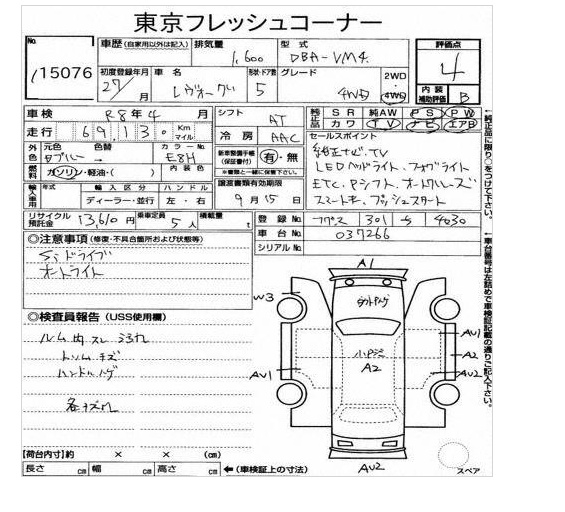 東京フレッシュコーナー
No. 15076
車歴 (自家用以外は記入) 排気量 1,600 型式 DBA-VM4 評価点 4
初度登録年月 27/ 車名 レヴォーグ 形状・ドア数 5 グレード 4WD 2WD・4WD 内装補助評価 B
車検 R8年4月 シフト AT 純正品 SR 純AW PS PW
革 カワ TV ナビ エアB
走行 69,130 Km マイル 冷房 AAC セールスポイント
外色 元色 ブルー 色替 カラーNo. E8H 新車整備手帳(保証書付) 有・無 純正ナビ、TV
※書類と一緒に保管下さい。 LEDヘッドライト、フォグライト
燃料 ガソリン・軽油・( ) 内装色 ETC、Pシフト、オートクルーズ
輸入車用 年式 輸入区分 ハンドル 譲渡書類有効期限 スマートキー、プッシュスタート
ディーラー・並行 左・右 9月15日
リサイクル預託金 13,610円 乗車定員 5人 積載量 t 登録No. 301 4030
車台No. 037266
シリアルNo.
◎注意事項 (修復・不具合箇所および状態等)
Siドライブ
オートライト
◎検査員報告 (USS使用欄)
ルーム内スレ ヨゴレ
トリムキズ
ハンドルハゲ
各キズ凹
A1
W3
AU1
A2
AU2
AU1
A2
AU2
スペア
【荷台内寸】約 × × (cm)
長さ cm 幅 cm 高さ cm ←(車検証上の寸法)
←純正品に限り○をつけて下さい。
←車台番号は左詰めで車検証記載の通りご記入下さい。